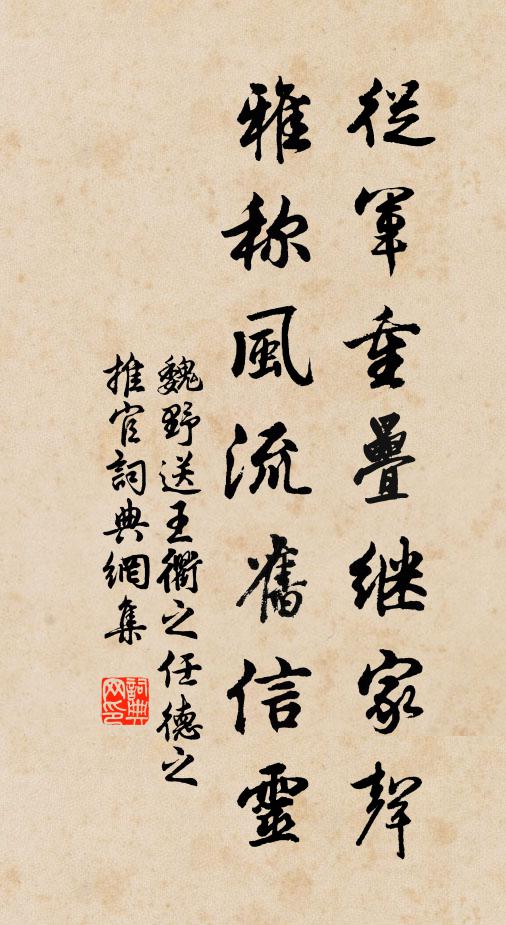 從軍重疊継家聲
雅称風流舊信靈
魏野送王衢之任德之
推官詞典網集
詞典网印